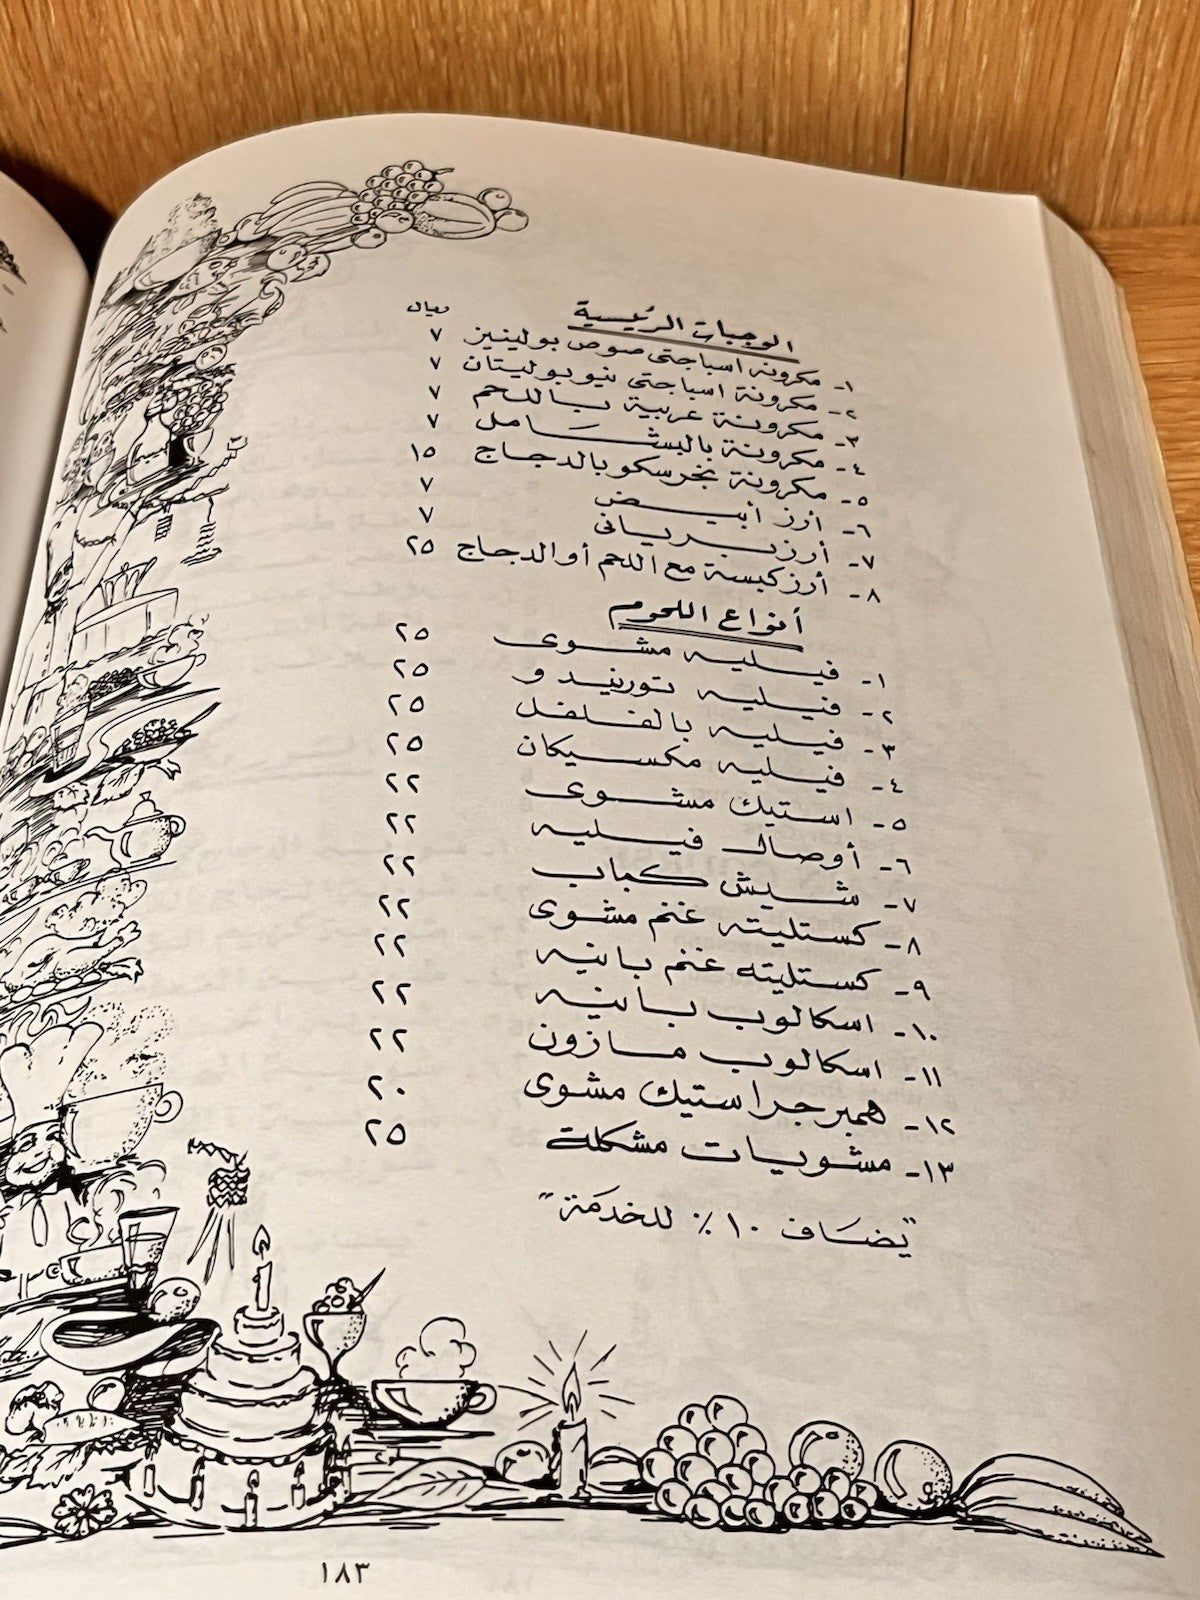 الوجبات الرئيسية ريال
١- مكرونة اسباجتى صوص بولينيز ٧
٢- مكرونة اسباجتى نيوبوليتان ٧
٣- مكرونة عربية باللحم ٧
٤- مكرونة بالبشامل ٧
٥- مكرونة نجرسكو بالدجاج ١٥
٦- أرز أبيض ٧
٧- أرز بريانى ٧
٨- أرز كبسة مع اللحم أو الدجاج ٢٥
أنواع اللحوم
١- فيليه مشوى ٢٥
٢- فيليه تورنيدو ٢٥
٣- فيليه بالفلفل ٢٥
٤- فيليه مكسيكان ٢٥
٥- استيك مشوى ٢٢
٦- أوصال فيليه ٢٢
٧- شيش كباب ٢٢
٨- كستليته غنم مشوى ٢٢
٩- كستليته غنم بانيه ٢٢
١٠- اسكالوب بانيه ٢٢
١١- اسكالوب مازون ٢٢
١٢- همبرجر استيك مشوى ٢٠
١٣- مشويات مشكلة ٢٥
"يضاف ١٠٪ للخدمة"
١٨٣